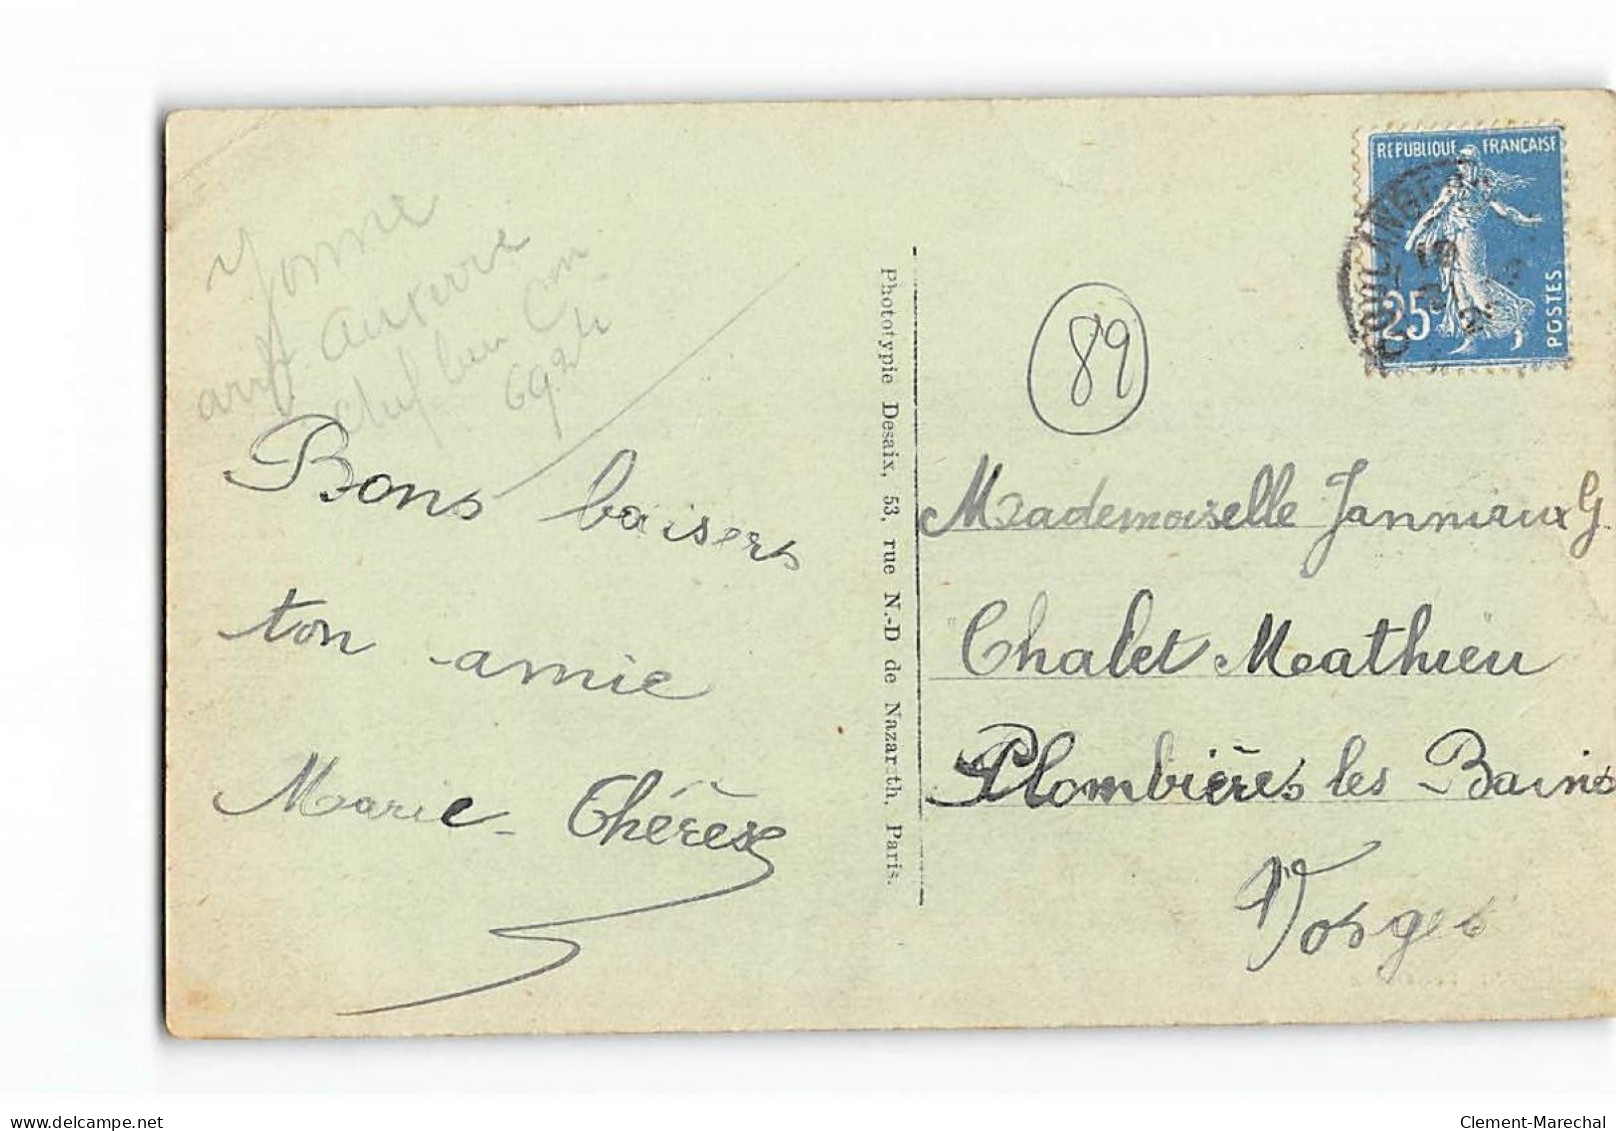 Yonne
arrt Auxerre
chef lieu Con
692 h
Bons baisers
ton amie
Marie-Thérèse
Phototypie Desaix, 53, rue N.-D de Nazareth, Paris.
89
REPUBLIQUE FRANÇAISE
25c
POSTES
COULANGE
Mademoiselle Janniaux G.
Chalet Mathieu
Plombières les Bains
Vosges
delcampe.net
Clement-Marechal